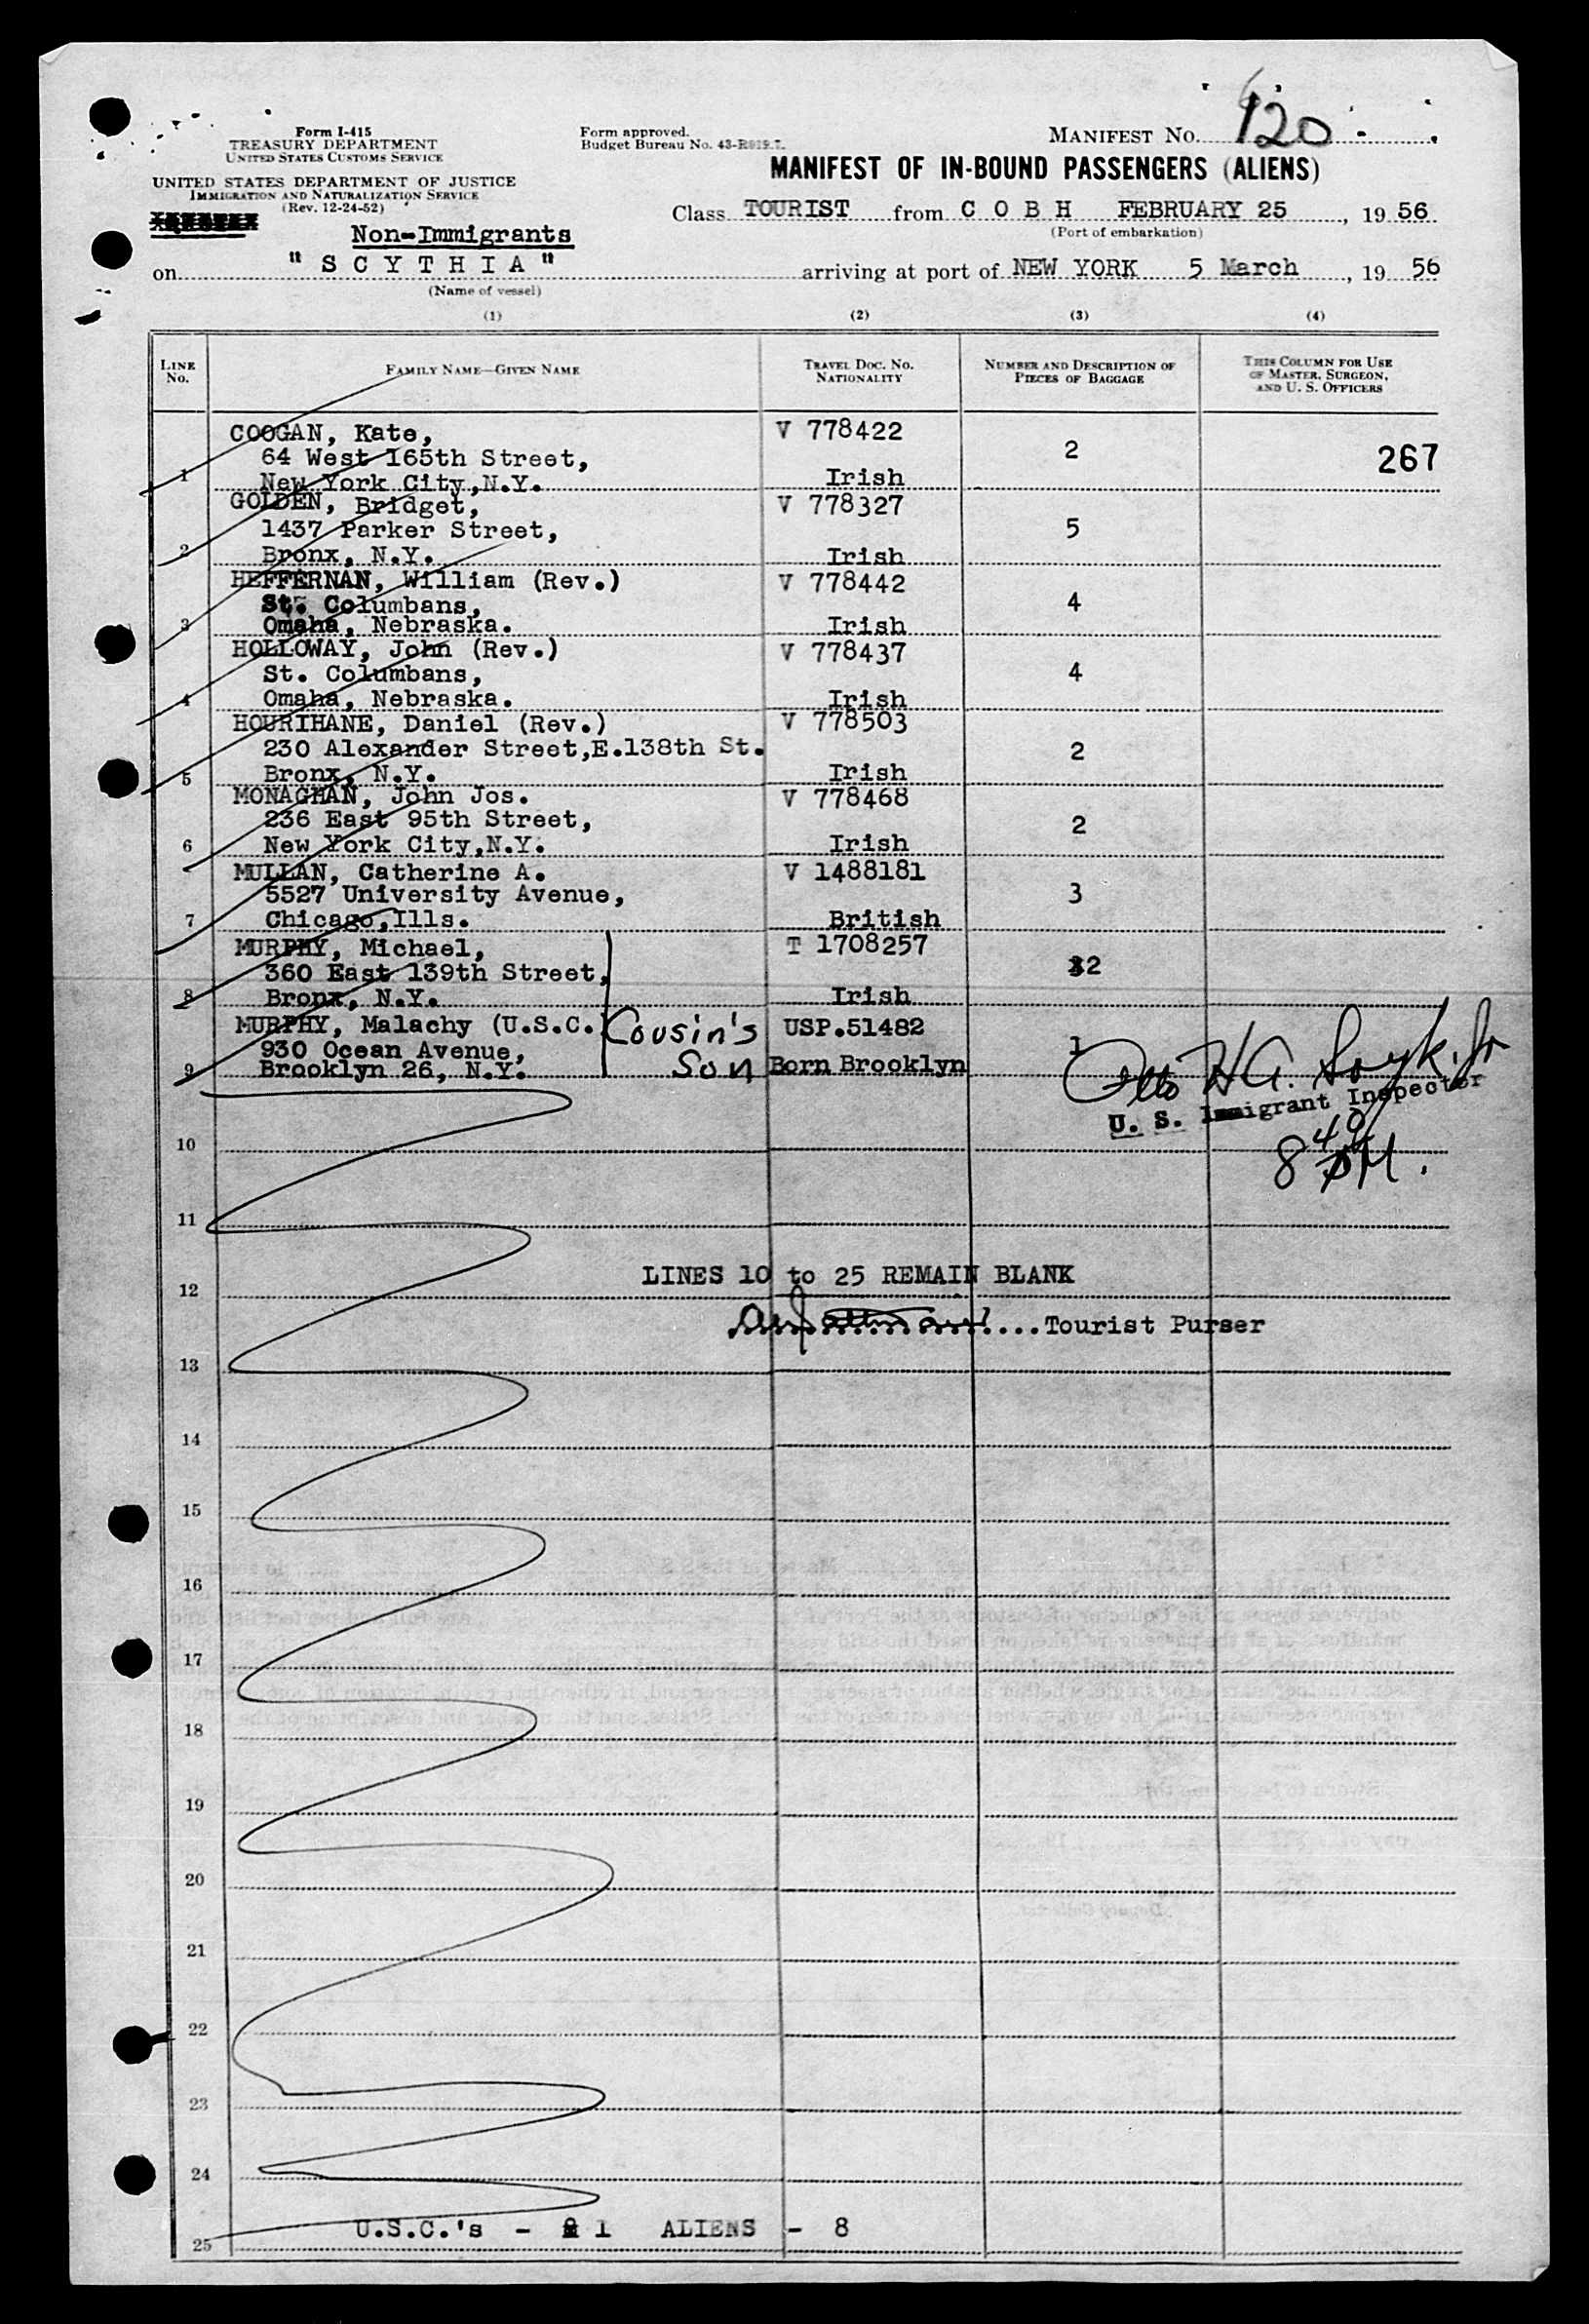 Form I-415
TREASURY DEPARTMENT
UNITED STATES CUSTOMS SERVICE
UNITED STATES DEPARTMENT OF JUSTICE
IMMIGRATION AND NATURALIZATION SERVICE
(Rev. 12-24-52)
Form approved.
Budget Bureau No.
MANIFEST NO. 120
MANIFEST OF IN-BOUND PASSENGERS (ALIENS)
Class TOURIST from C O B H FEBRUARY 25, 19 56
(Port of embarkation)
Non-Immigrants
on " S C Y T H I A " arriving at port of NEW YORK 5 March, 19 56
(Name of vessel)
(1) (2) (3) (4)
LINE NO.
FAMILY NAME—GIVEN NAME
TRAVEL DOC. NO. NATIONALITY
NUMBER AND DESCRIPTION OF PIECES OF BAGGAGE
THIS COLUMN FOR USE OF MASTER, SURGEON, AND U. S. OFFICERS
COOGAN, Kate, V 778422
64 West 165th Street, 2 267
1 New York City, N.Y. Irish
GOLDEN, Bridget, V 778327
1437 Parker Street, 5
2 Bronx, N.Y. Irish
HEFFERNAN, William (Rev.) V 778442
St. Columbans, 4
3 Omaha, Nebraska. Irish
HOLLOWAY, John (Rev.) V 778437
St. Columbans, 4
4 Omaha, Nebraska. Irish
HOURIHANE, Daniel (Rev.) V 778503
230 Alexander Street,E.138th St. 2
5 Bronx, N.Y. Irish
MONAGHAN, John Jos. V 778468
236 East 95th Street, 2
6 New York City,N.Y. Irish
MULLAN, Catherine A. V 1488181
5527 University Avenue, 3
7 Chicago,Ills. British
MURPHY, Michael, T 1708257
360 East 139th Street, 2
8 Bronx, N.Y. Irish
MURPHY, Malachy (U.S.C. Cousin's USP.51482
930 Ocean Avenue, Son 1
9 Brooklyn 26, N.Y. Born Brooklyn
Otto H A. Jr
U. S. Immigrant Inspector
8 40 PM.
10
11
LINES 10 to 25 REMAIN BLANK
12
....Tourist Purser
13
14
15
16
17
18
19
20
21
22
23
24
U.S.C.'s - 1 ALIENS - 8
25